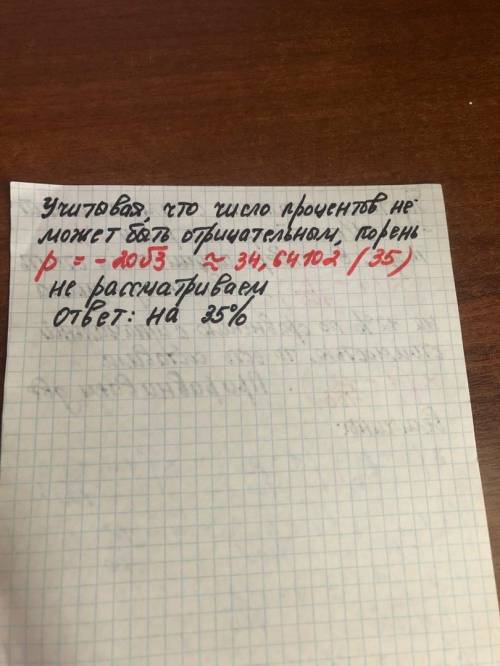 Учитовая, что число процентов не
может быть отрицательном, корень
p = - 20√3 ≈ 34,64102 (35)
не рассматриваем
Ответ: на 35%